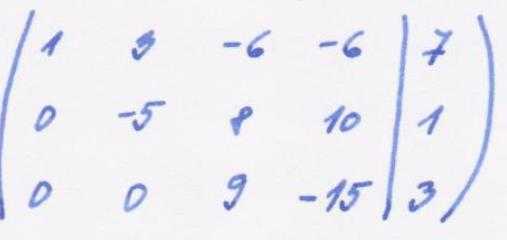 1 3 -6 -6 | 7
0 -5 8 10 | 1
0 0 9 -15 | 3